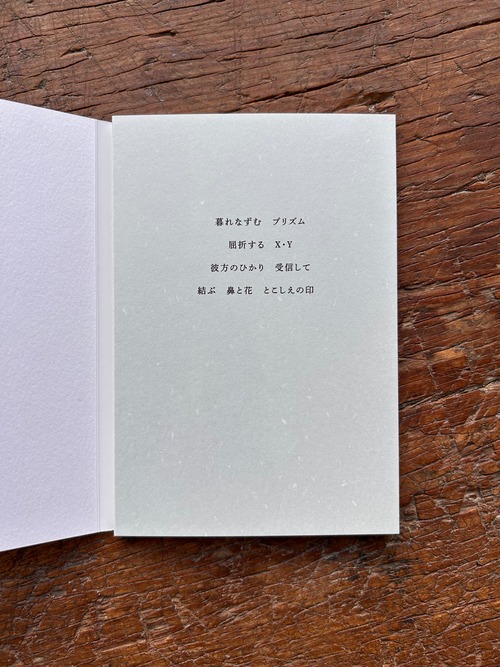 暮れなずむ　プリズム
屈折する　X・Y
彼方のひかり　受信して
結ぶ　鼻と花　とこしえの印